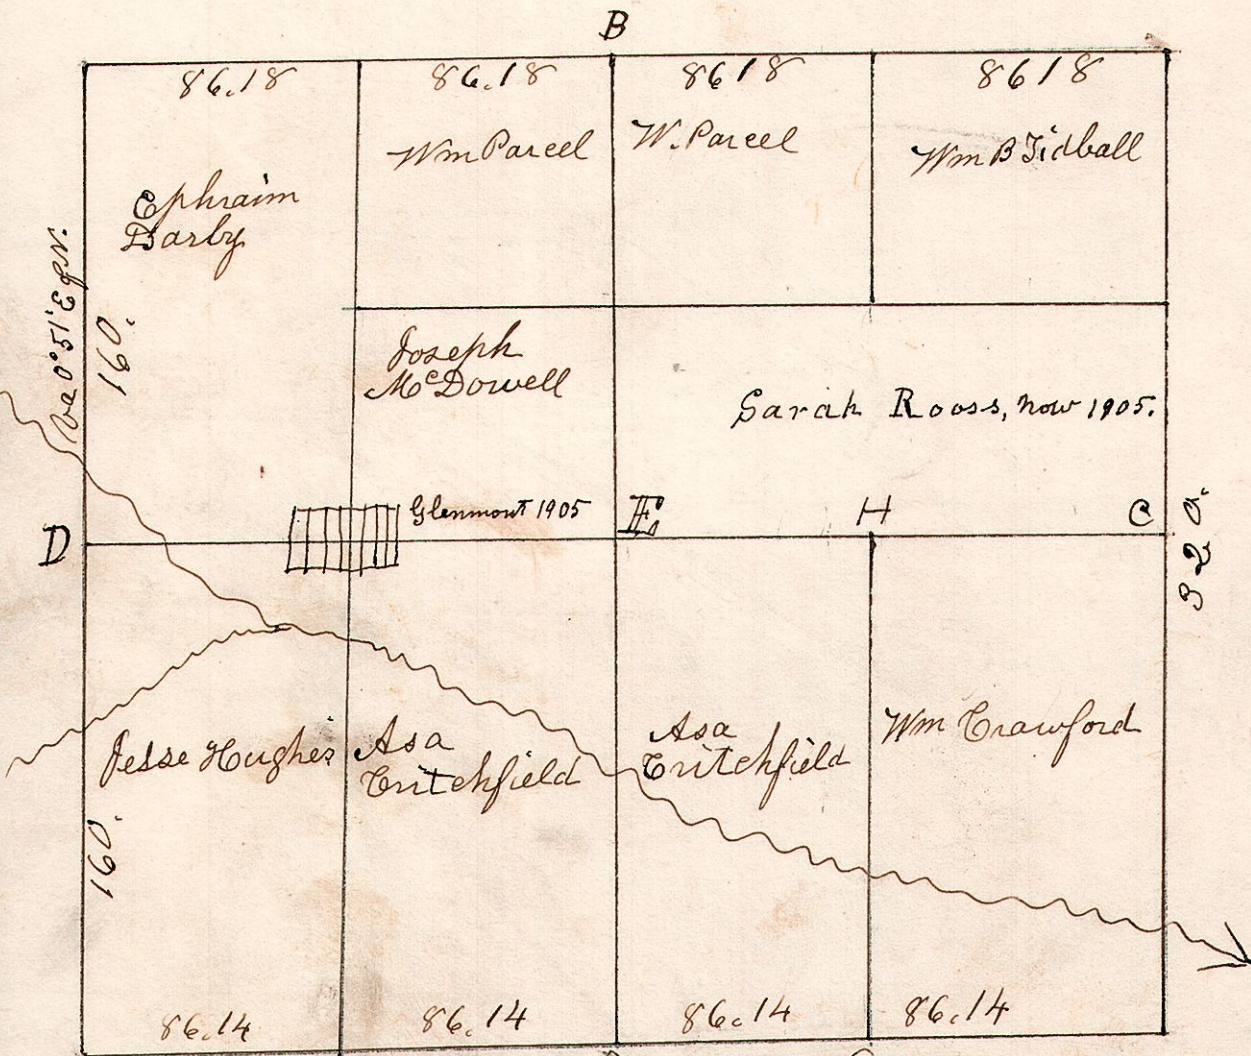 B
86.18
86.18
8618
8618
Wm Parcel
W. Parcel
Wm B Tidball
Ephraim
Darby
va 0° 51' E of N.
160.
Joseph
McDowell
Sarah Rooss, now 1905.
Glenmont 1905
D
E
H
C
320.
Jesse Hughes
Asa
Critchfield
Asa
Critchfield
Wm Crawford
160.
86.14
86.14
86.14
86.14